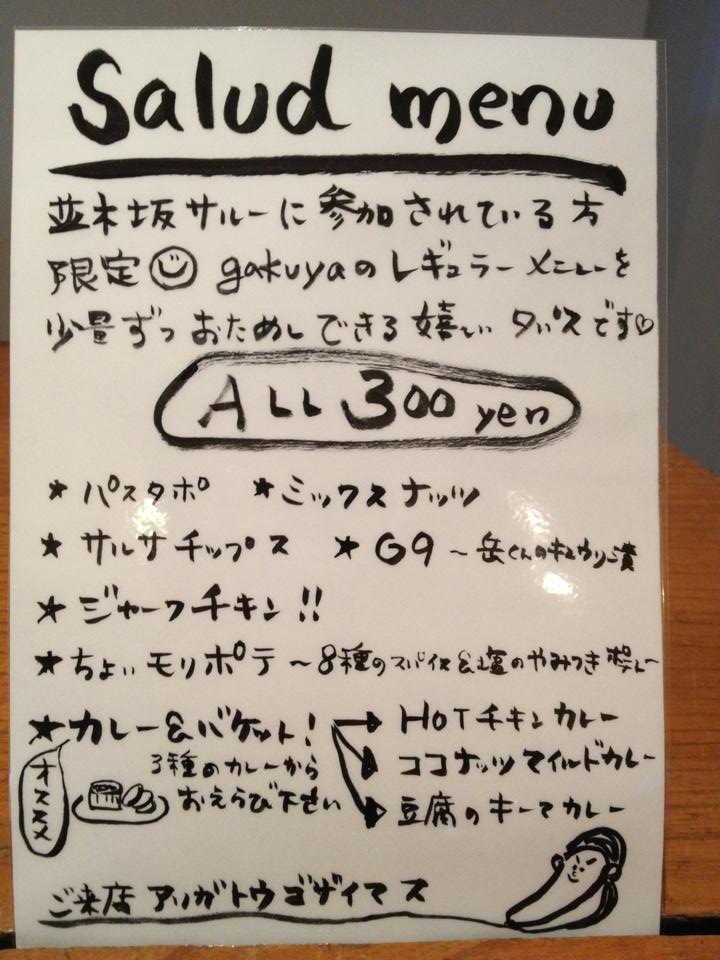 Salud menu
並木坂サルーに参加されている方
限定 gakuyaのレギュラーメニューを
少量ずつおためしできる嬉しい タパスです♡
ALL 300 yen
★ パスタポ ★ ミックスナッツ
★ サルサチップス ★ G9 〜岳くんのキュウリ漬
★ ジャークチキン!!
★ ちょいモリポテ 〜8種のスパイス&塩のやみつき
★ カレー&バケット! → HOTチキンカレー
オススメ 3種のカレーから ココナッツマイルドカレー
おえらび下さい 豆腐のキーマカレー
ご来店 アリガトウゴザイマス